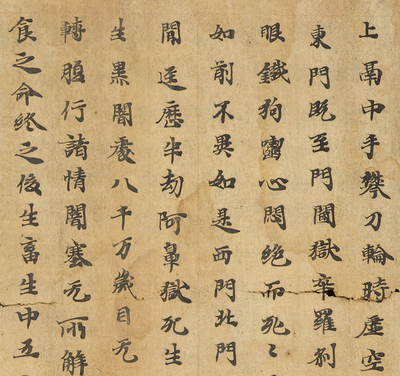 上鬲中手攀刀輪時虛空
東門既至門閫獄卒羅剎
眼鐵狗嚙心悶絕而死〻
如前不異如是西門北門
間逕歷半劫阿鼻獄死生
生黑闇處八千万歲目无
轉腹行諸情闇塞无所解
食之命終之後生畜生中五